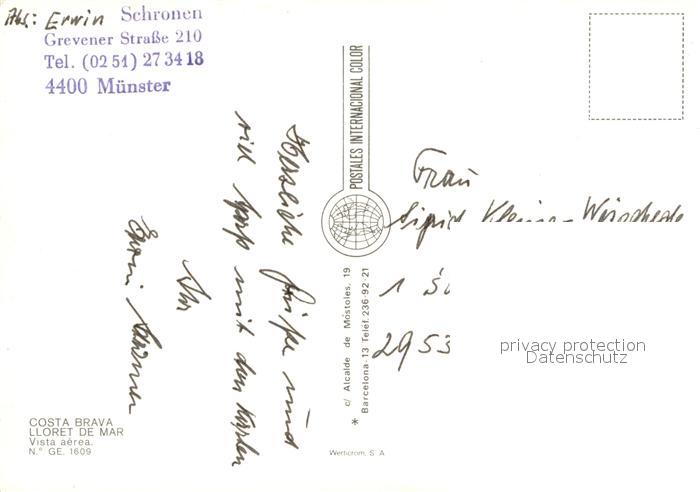 Abs: Erwin Schronen
Grevener Straße 210
Tel. (02 51) 27 34 18
4400 Münster
Herzliche Grüße und
viel Spaß mit den Karten
Ihr
Erwin Schronen
POSTALES INTERNACIONAL COLOR
c/ Alcalde de Móstoles, 19
Barcelona-13 Teléf. 236-92-21
Frau
2953
privacy protection
Datenschutz
COSTA BRAVA
LLORET DE MAR
Vista aérea.
N.º GE. 1609
Werticrom, S. A.